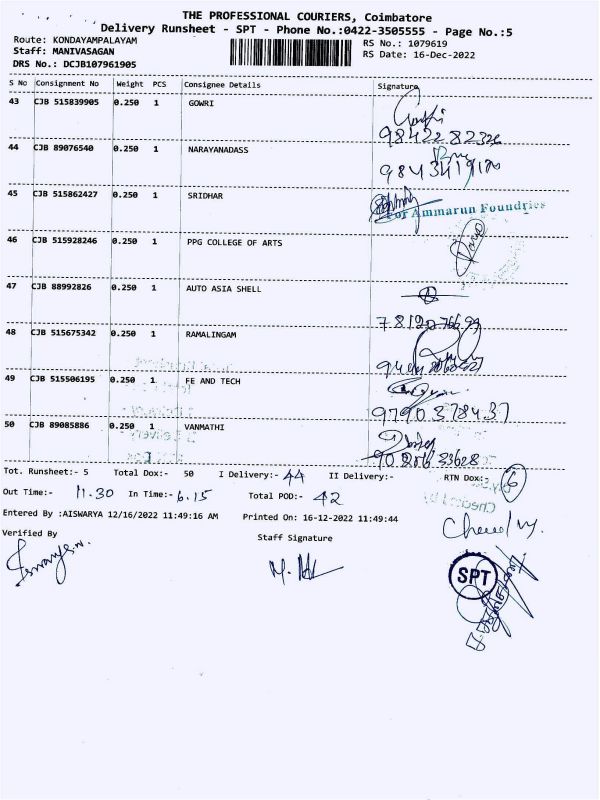 THE PROFESSIONAL COURIERS, Coimbatore
Delivery Runsheet - SPT - Phone No.:0422-3505555 - Page No.:5
Route: KONDAYAMPALAYAM
RS No.: 1079619
Staff: MANIVASAGAN
RS Date: 16-Dec-2022
DRS No.: DCJB107961905
S No Consignment No Weight PCS Consignee Details Signature
43 CJB 515839905 0.250 1 GOWRI
44 CJB 89076540 0.250 1 NARAYANADASS
45 CJB 515862427 0.250 1 SRIDHAR
For Ammarun Foundries
46 CJB 515928246 0.250 1 PPG COLLEGE OF ARTS
47 CJB 88992826 0.250 1 AUTO ASIA SHELL
48 CJB 515675342 0.250 1 RAMALINGAM
49 CJB 515506195 0.250 1 FE AND TECH
9790378437
50 CJB 89085886 0.250 1 VANMATHI
Tot. Runsheet:- 5 Total Dox:- 50 I Delivery:- 44 II Delivery:- RTN Dox:- 6
Out Time:- 11.30 In Time:- 6.15 Total POD:- 42
Entered By :AISWARYA 12/16/2022 11:49:16 AM Printed On: 16-12-2022 11:49:44
Verified By
Staff Signature
SPT